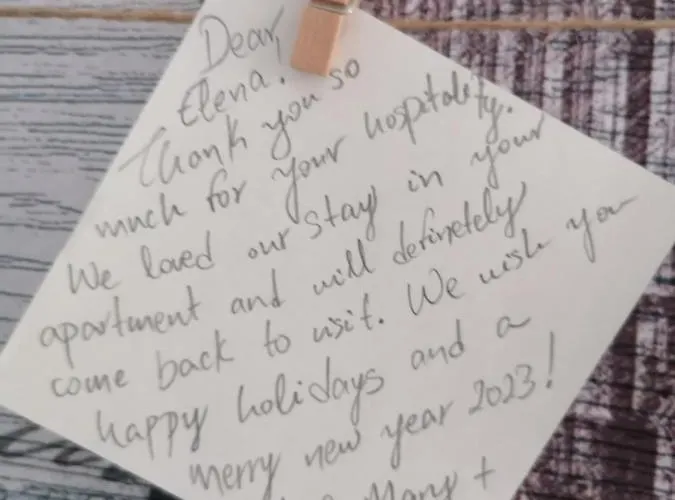 Dear,
Elena.
Thank you so
much for your hospitality.
We loved our stay in your
apartment and will definetely
come back to visit. We wish you
happy holidays and a
merry new year 2023!
Mary +